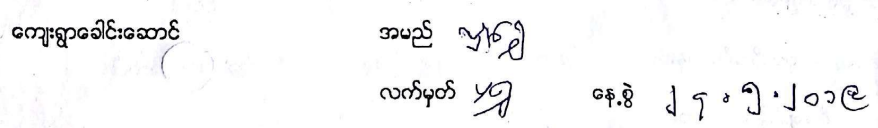 ကျေးရွာခေါင်းဆောင် အမည်
လက်မှတ် နေ့စွဲ ၂၄.၅.၂၀၁၉